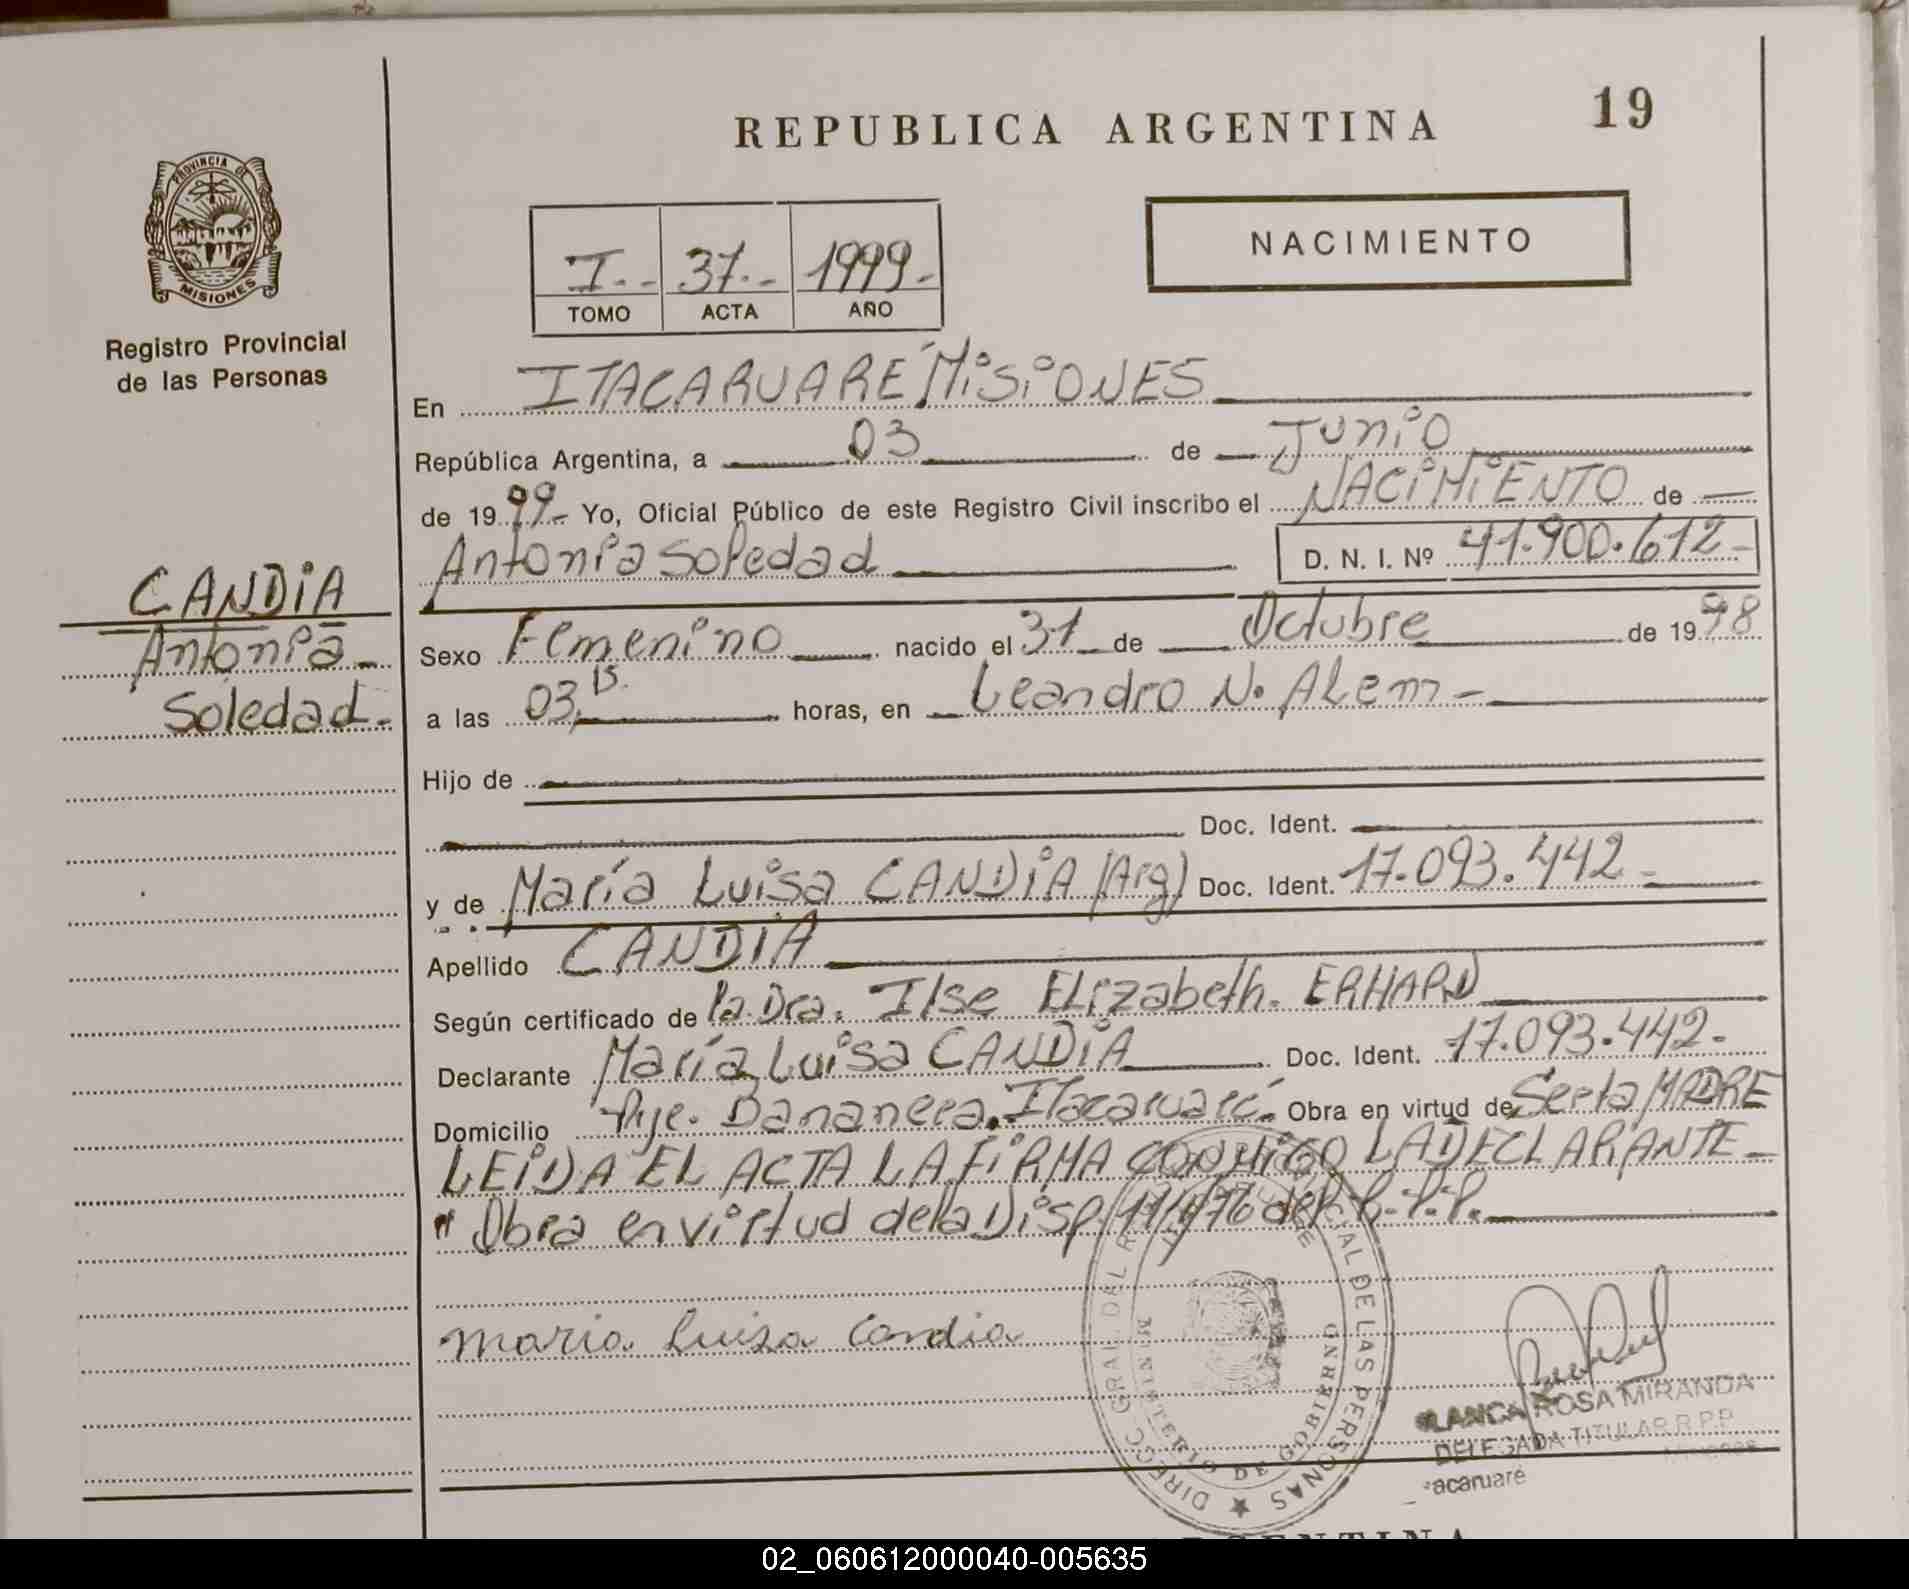 REPUBLICA ARGENTINA
19
PROVINCIA DE
MISIONES
Registro Provincial
de las Personas
I.- 37.- 1999.-
TOMO ACTA AÑO
NACIMIENTO
En ITACARUARÉ MISIONES
República Argentina, a 03 de Junio
de 1999.- Yo, Oficial Público de este Registro Civil inscribo el NACIMIENTO de
Antonia Soledad D. N. I. Nº 41.900.612-
CANDIA
Antonia
Soledad.
Sexo Femenino nacido el 31 de Octubre de 1998
a las 03,15. horas, en Leandro N. ALem -
Hijo de
Doc. Ident.
y de María Luisa CANDIA (Arg) Doc. Ident. 17.093.442-
Apellido CANDIA
Según certificado de la Dra. Ilse Elizabeth. ERHARD
Declarante María Luisa CANDIA Doc. Ident. 17.093.442-
Domicilio Pje. Bananera. Itacaruaré. Obra en virtud de Ser la MADRE
LEIDA EL ACTA LA FIRMA CONMIGO LA DECLARANTE-
" Obra en virtud de la Disp. 11/76 del R.P.P.
Maria Luisa Candia
DIRECC. GRAL. DEL AL DE LAS PERSONAS
MINISTERIO DE GOBIERNO
BLANCA ROSA MIRANDA
DELEGADA TITULAR R.P.P.
acaruaré
ARGENTINA
02_060612000040-005635